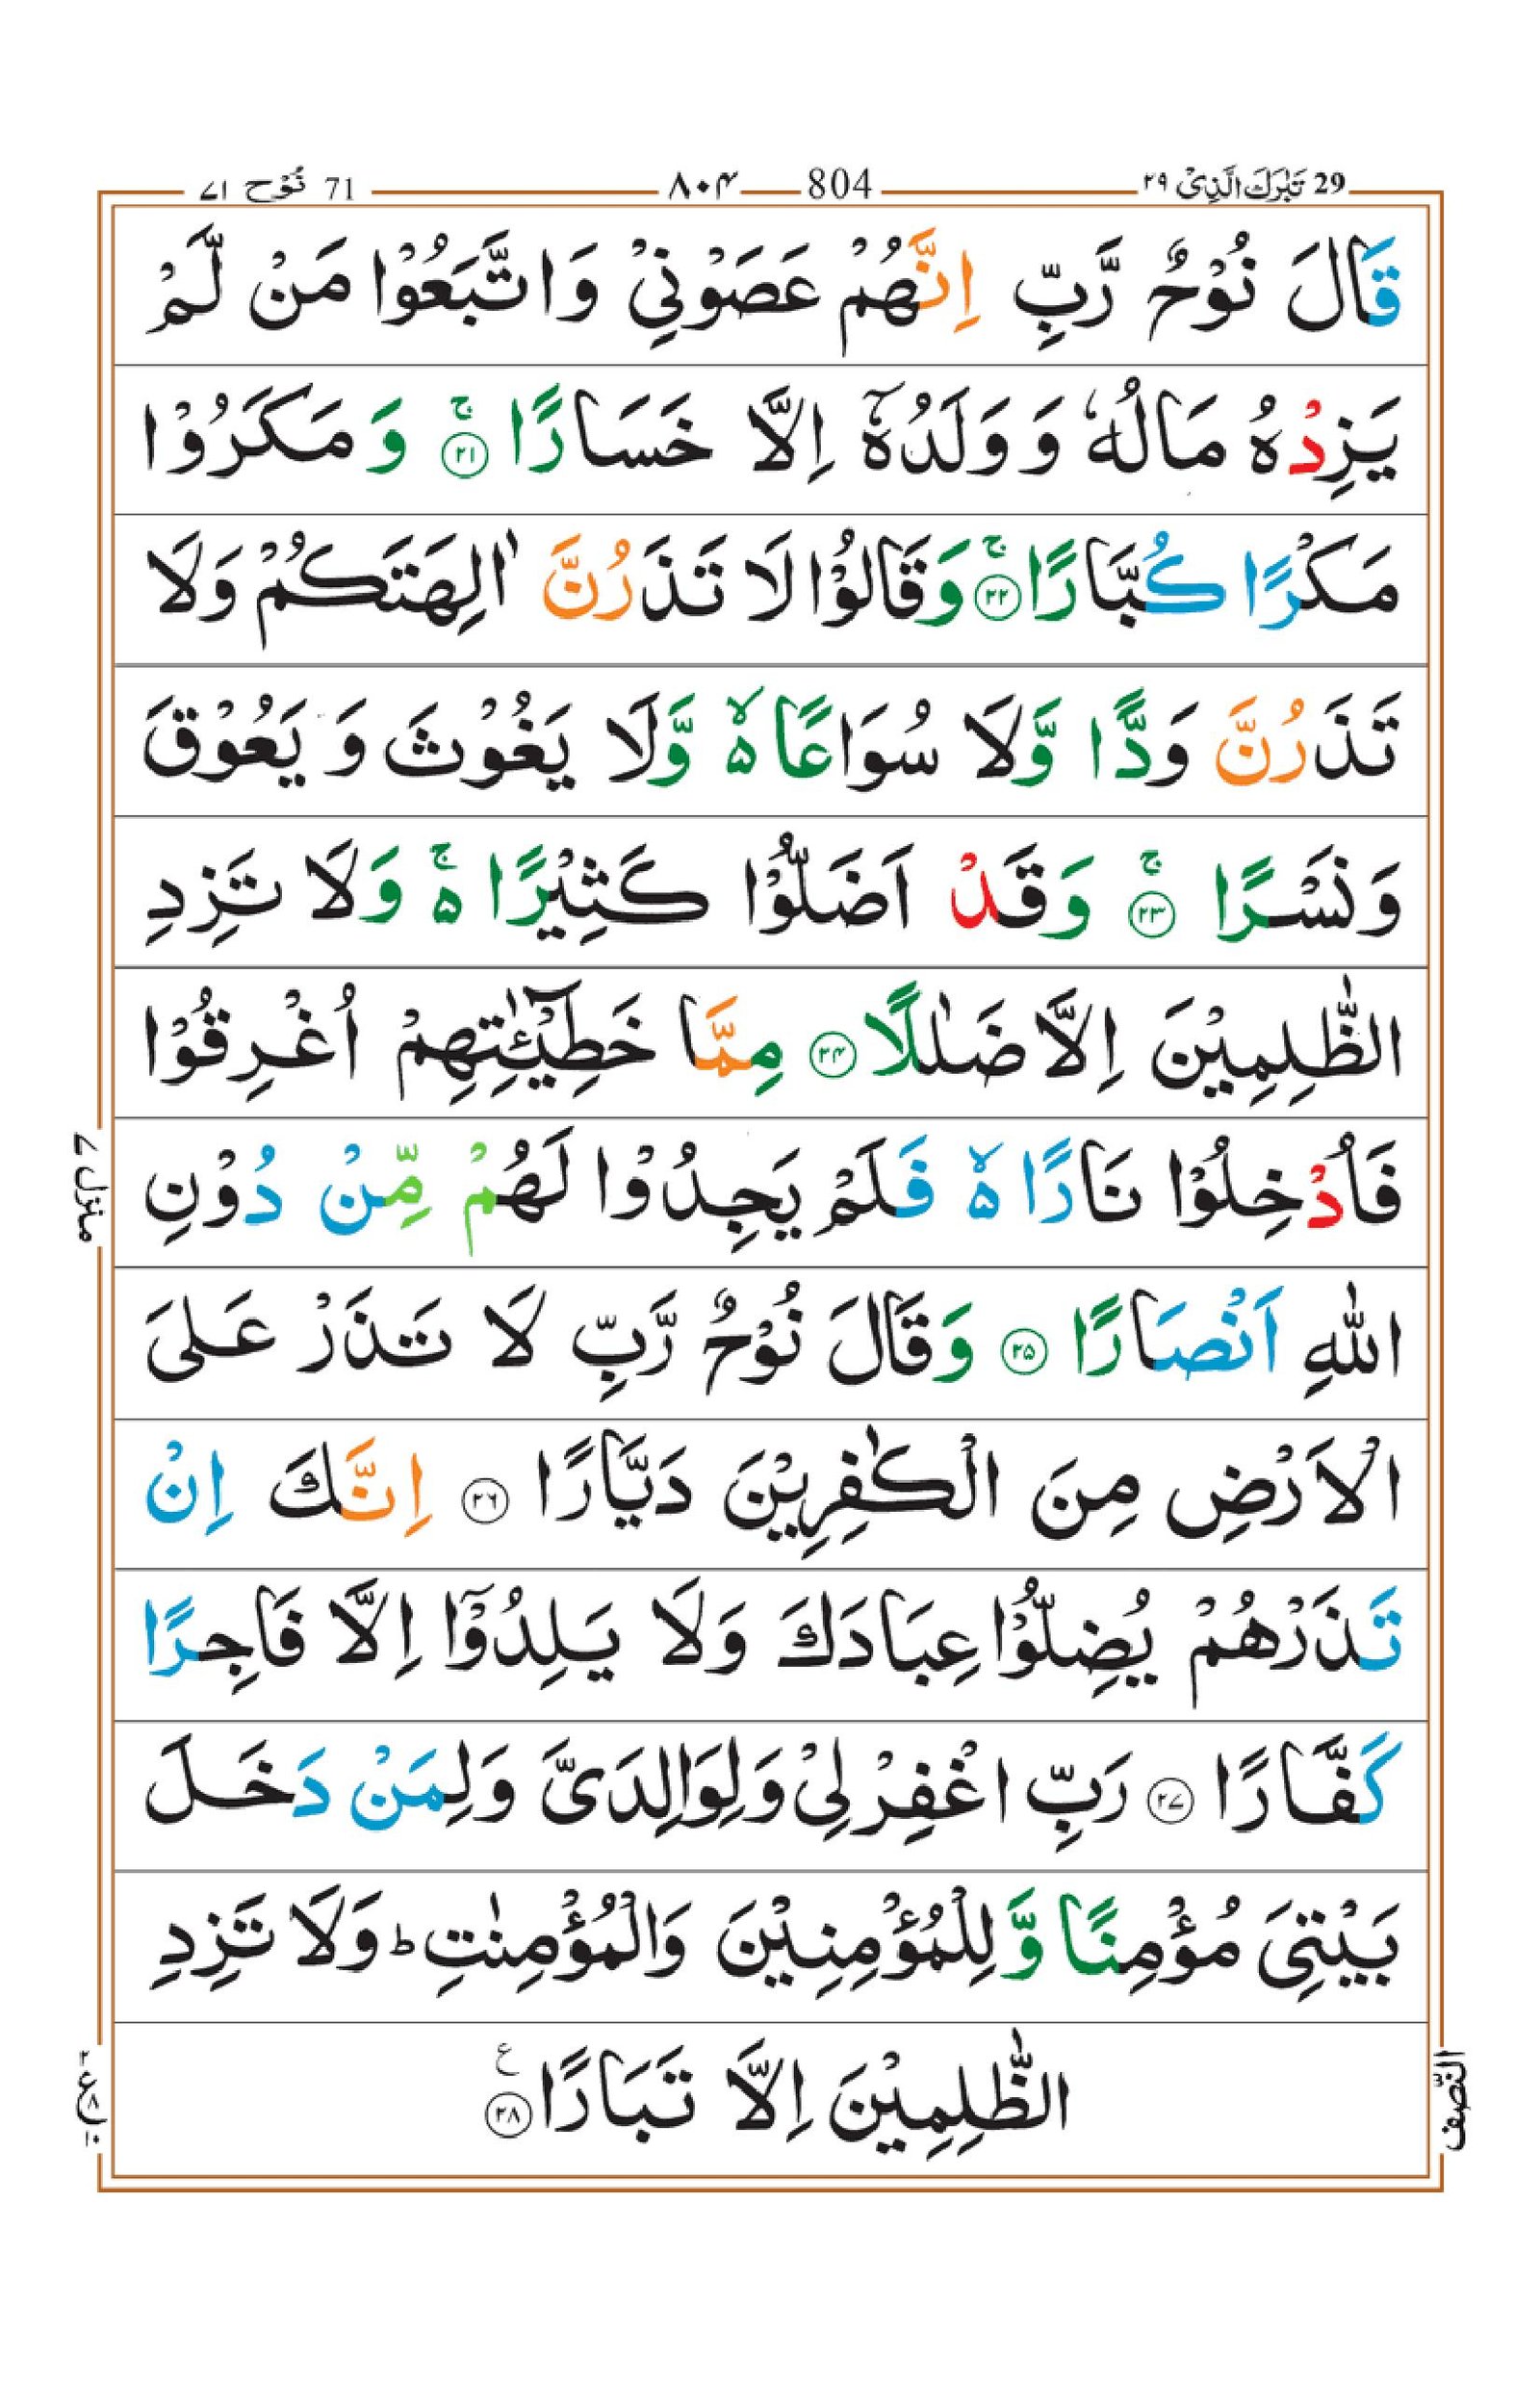 29 تَبٰرَكَ الَّذِىْ ٢٩
804 ٨٠۴
71 نُوْح ٧١
قَالَ نُوْحٌ رَّبِّ اِنَّهُمْ عَصَوْنِيْ وَاتَّبَعُوْا مَنْ لَّمْ
يَزِدْهُ مَالُهٗ وَ وَلَدُهٗٓ اِلَّا خَسَارًا ۚ ٢١ وَ مَكَرُوْا
مَكْرًا كُبَّارًا ۚ ٢٢ وَقَالُوْا لَا تَذَرُنَّ اٰلِهَتَكُمْ وَلَا
تَذَرُنَّ وَدًّا وَّلَا سُوَاعًا ۵ۙ وَّلَا يَغُوْثَ وَ يَعُوْقَ
وَنَسْرًا ۚ ٢٣ وَقَدْ اَضَلُّوْا كَثِيْرًا ۵ۚ وَلَا تَزِدِ
الظّٰلِمِيْنَ اِلَّا ضَلٰلًا ٢۴ مِمَّا خَطِيْٓـٰٔتِهِمْ اُغْرِقُوْا
فَاُدْخِلُوْا نَارًا ۵ۙ فَلَمْ يَجِدُوْا لَهُمْ مِّنْ دُوْنِ
اللّٰهِ اَنْصَارًا ٢۵ وَقَالَ نُوْحٌ رَّبِّ لَا تَذَرْ عَلَى
الْاَرْضِ مِنَ الْكٰفِرِيْنَ دَيَّارًا ٢٦ اِنَّكَ اِنْ
تَذَرْهُمْ يُضِلُّوْا عِبَادَكَ وَلَا يَلِدُوْٓا اِلَّا فَاجِرًا
كَفَّارًا ٢٧ رَبِّ اغْفِرْ لِيْ وَلِوَالِدَيَّ وَلِمَنْ دَخَلَ
بَيْتِيَ مُؤْمِنًا وَّلِلْمُؤْمِنِيْنَ وَالْمُؤْمِنٰتِ ؕ وَلَا تَزِدِ
الظّٰلِمِيْنَ اِلَّا تَبَارًا ٢٨ ع
منزل ٧
النّصف